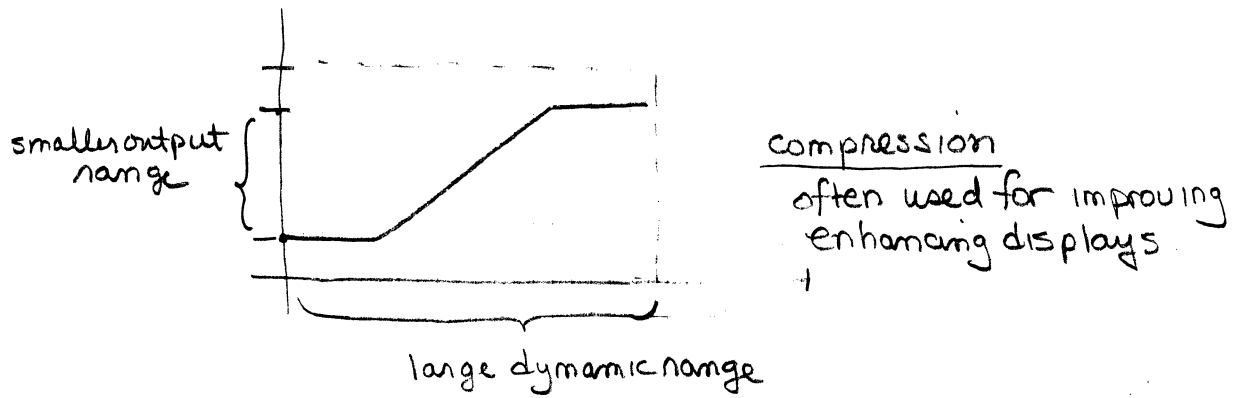 smaller output
range
compression
often used for improving
enhancing displays
large dynamic range